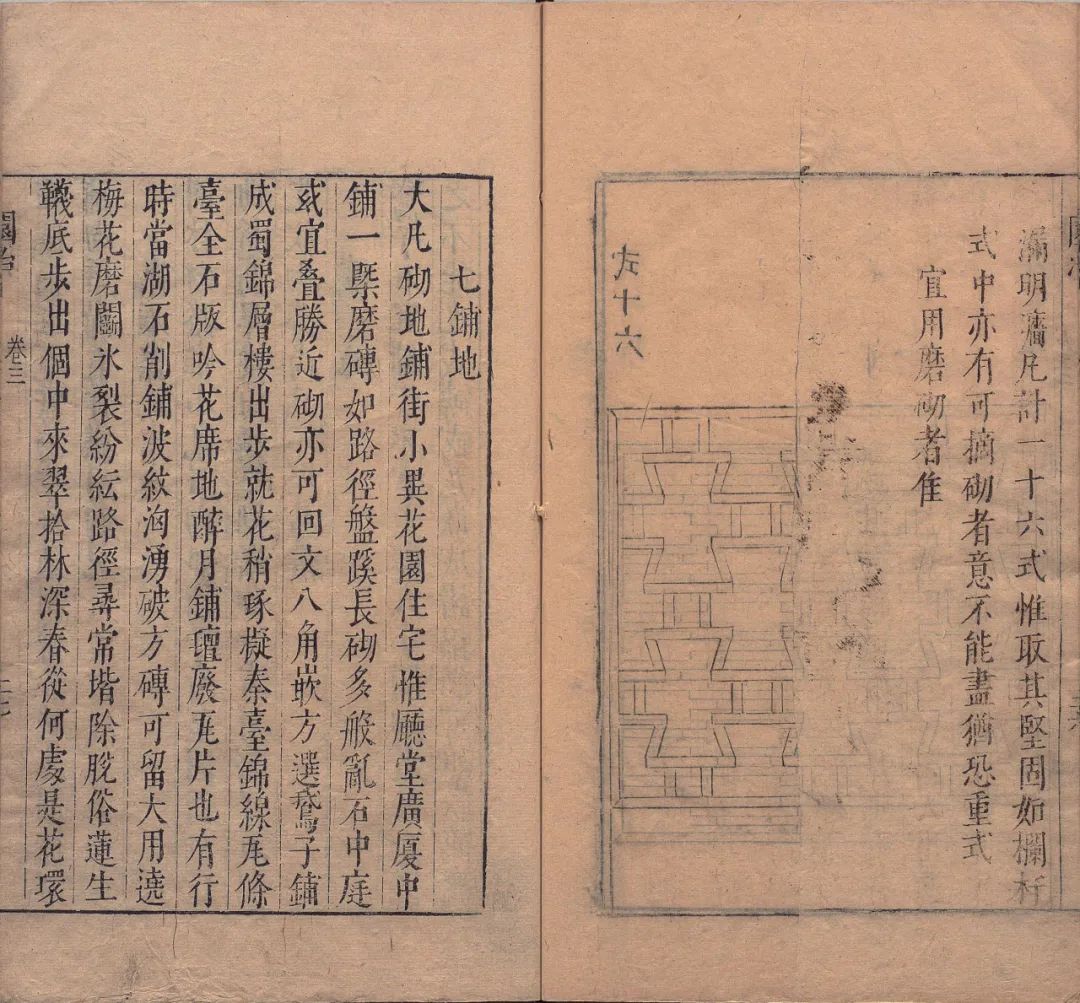 漏明牆凡計一十六式惟取其堅固如欄杆
式中亦有可摘砌者意不能盡猶恐重式
宜用磨砌者隹
式十六
七鋪地
大凡砌地鋪街小異花園住宅惟廳堂廣厦中
鋪一槩磨磚如路徑盤蹊長砌多般亂石中庭
或宜疊勝近砌亦可回文八角嵌方選鵞子鋪
成蜀錦層樓出步就花稍琢擬秦臺錦線瓦條
臺全石版吟花席地醉月鋪氊廢瓦片也有行
時當湖石削鋪波紋洶湧破方磚可留大用遶
梅花磨鬭氷裂紛紜路徑尋常堦除脫俗蓮生
韈底步出個中來翠拾林深春從何處是花環
園冶
卷三